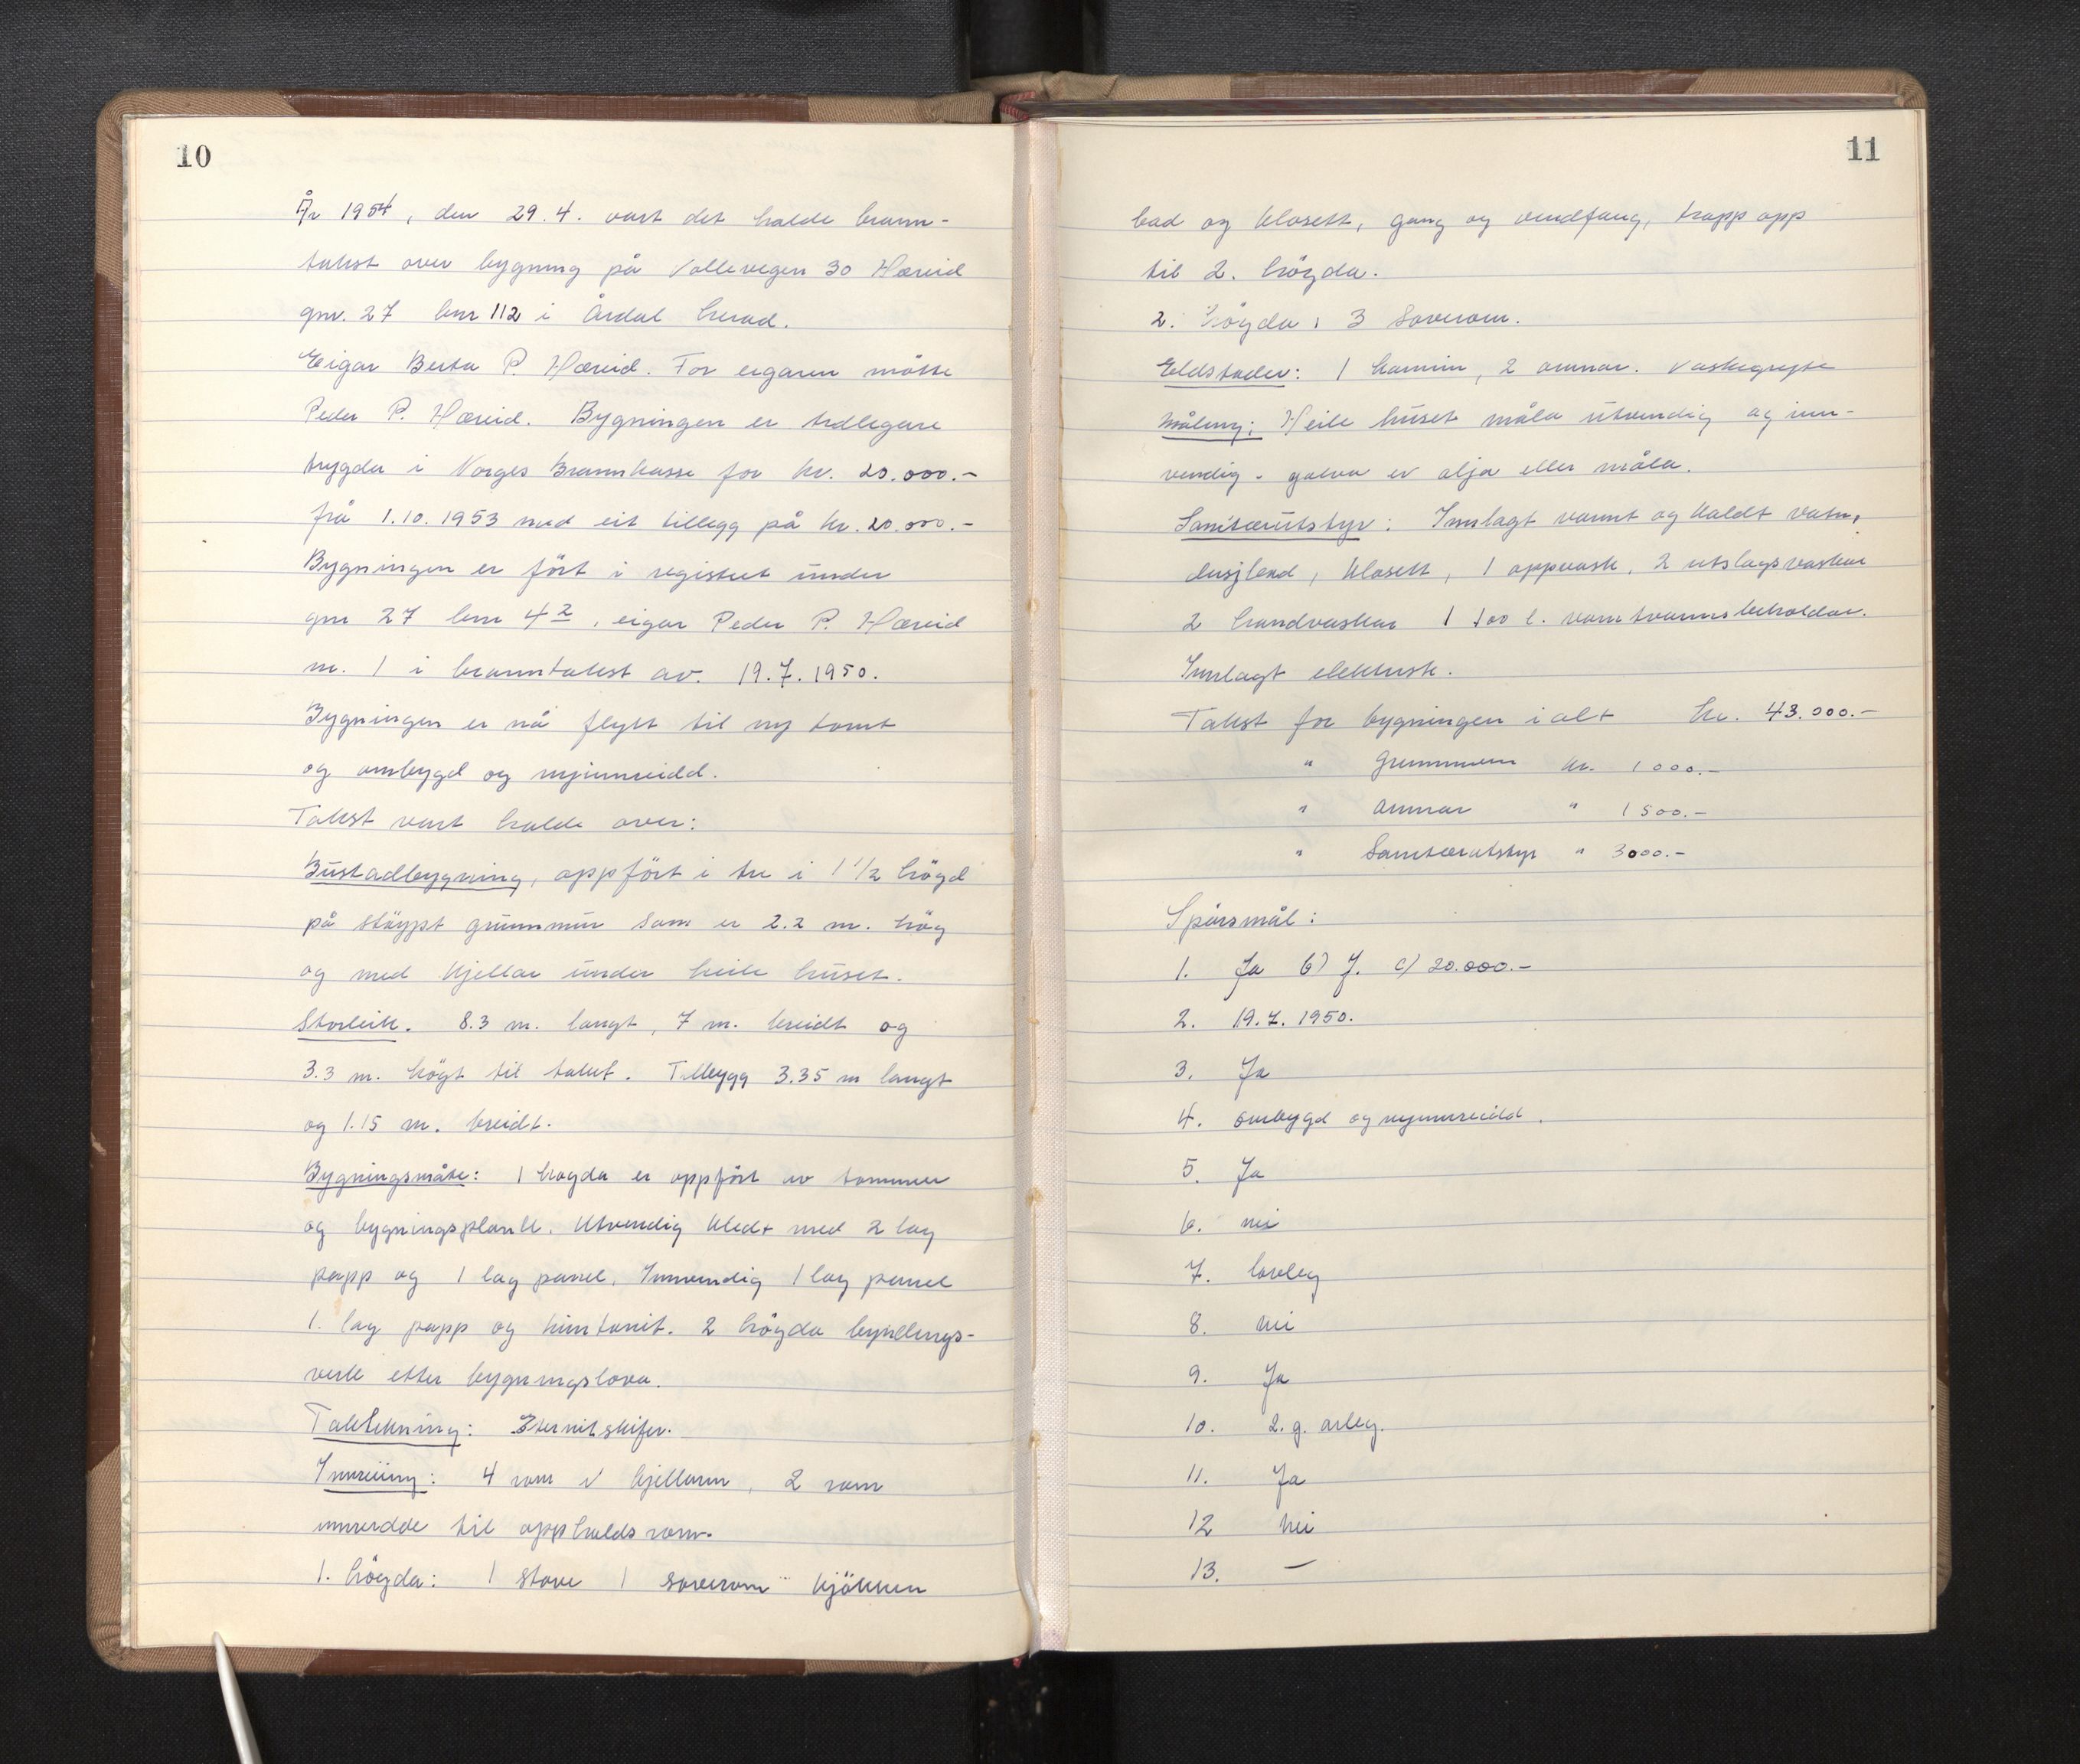 10
År 1954, den 29.4. vart det halde brann-
takst over bygning på Vallevegen 30 Hæreid
gnr. 27 bnr 112 i Årdal herad.
Eigar Berta P. Hæreid. For eigaren møtte
Peder P. Hæreid. Bygningen er tidlegare
trygda i Norges Brannkasse for kr. 20.000.-
frå 1.10.1953 med eit tillegg på kr. 20.000.-
Bygningen er ført i registret under
gnr 27 bnr 42, eigar Peder P. Hæreid
nr. 1 i branntakst av. 19.7.1950.
Bygningen er nå flytt til ny tomt
og ombygd og nyinnreidd.
Takst vart halde over:
Bustadbygning, oppført i tre i 1 1/2 høgd
på støypt grunnmur som er 2.2 m. høg
og med kjellar under heile huset.
Storleik. 8.3 m. langt, 7 m. breidt og
3.3 m. høgt til taket. Tilbygg 3.35 m langt
og 1.15 m. breidt.
Bygningsmåte: 1 høgda er oppført av tømmer
og bygningsplank. Utvendig kledt med 2 lag
papp og 1 lag panel. Innvendig 1 lag panel
1. lag papp og huntonit. 2 høgda bindings-
verk etter bygningslova.
Taktekning: Eternitskifer.
Innreiing: 4 rom i kjellaren, 2 rom
innreidde til oppholdsrom.
1. høgda: 1 stove 1 soverom kjøkken
11
bad og klosett, gang og vindfang, trapp opp
til 2. høgda.
2. høgda: 3 soverom.
Eldstader: 1 kamin, 2 omnar. Vaskegryte
Måling: Heile huset måla utvendig og inn-
vendig - golva er olja eller måla.
Sanitærutstyr: Innlagt varmt og kaldt vatn,
dusjbad, klosett, 1 oppvask, 2 utslagsvaskar
2 handvaskar 1 100 l. varmtvannsbeholdar.
Innlagt elektrisk.
Takst for bygningen i alt kr. 43.000.-
" Grunnmuren kr. 1000.-
" omnar " 1500.-
" Sanitærutstyr " 3000.-
Spørsmål:
1. Ja b) J. c) 20.000.-
2. 19.7.1950.
3. Ja
4. ombygd og nyinnreidd.
5. Ja
6. nei
7. lovleg
8. nei
9. Ja
10. 2.g. årleg.
11. Ja
12 nei
13. —